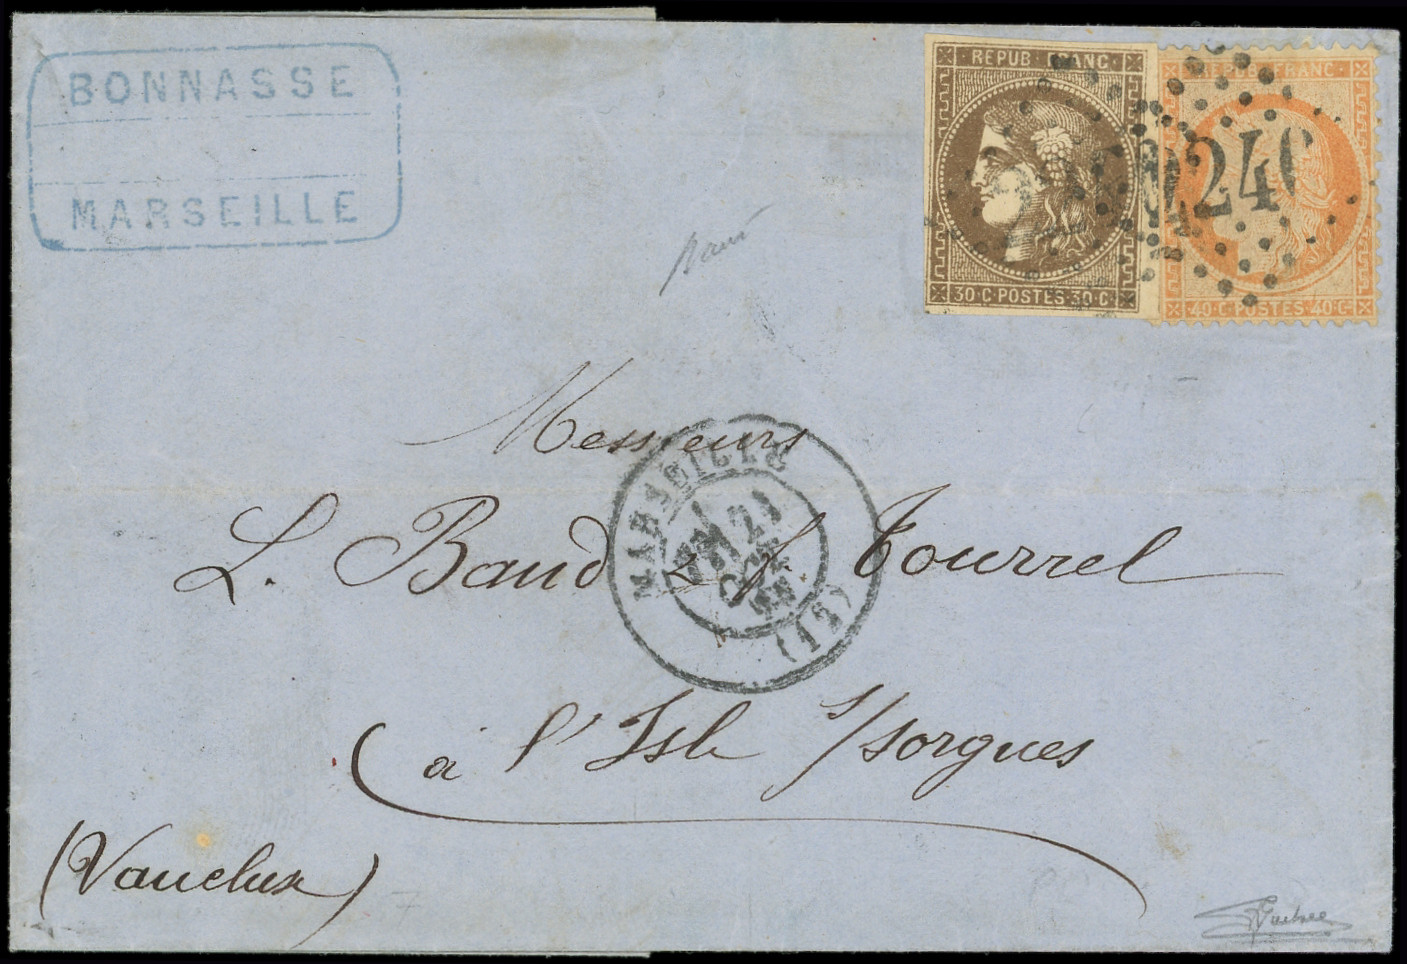 BONNASSE
MARSEILLE
REPUB FRANC
30·C·POSTES·30·C
FRANC
40·C·POSTES·40·C
Messieurs
L. Baud & f. Tourrel
MARSEILLE
21
OCT
(12)
à l'Isle s/sorgues
(Vaucluse)